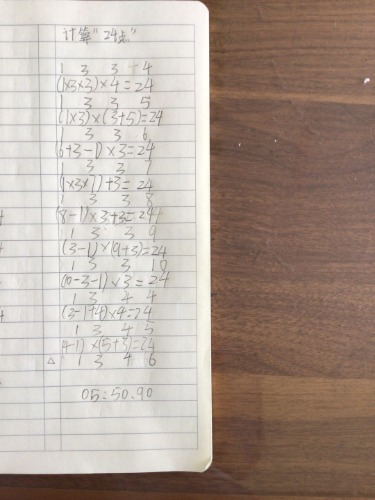 计算"24点"
1 3 3 4
(1×3×3)×4=24
1 3 3 5
(1×3)×(3+5)=24
1 3 3 6
(6+3-1)×3=24
1 3 3 7
(1×3×7)+3=24
1 3 3 8
(8-1)×3+3=24
1 3 3 9
(3-1)×(9+3)=24
1 3 3 10
(10-3-1)×3=24
1 3 4 4
(3-1+4)×4=24
1 3 4 5
(4-1)×(5+3)=24
△ 1 3 4 6
05:50.90